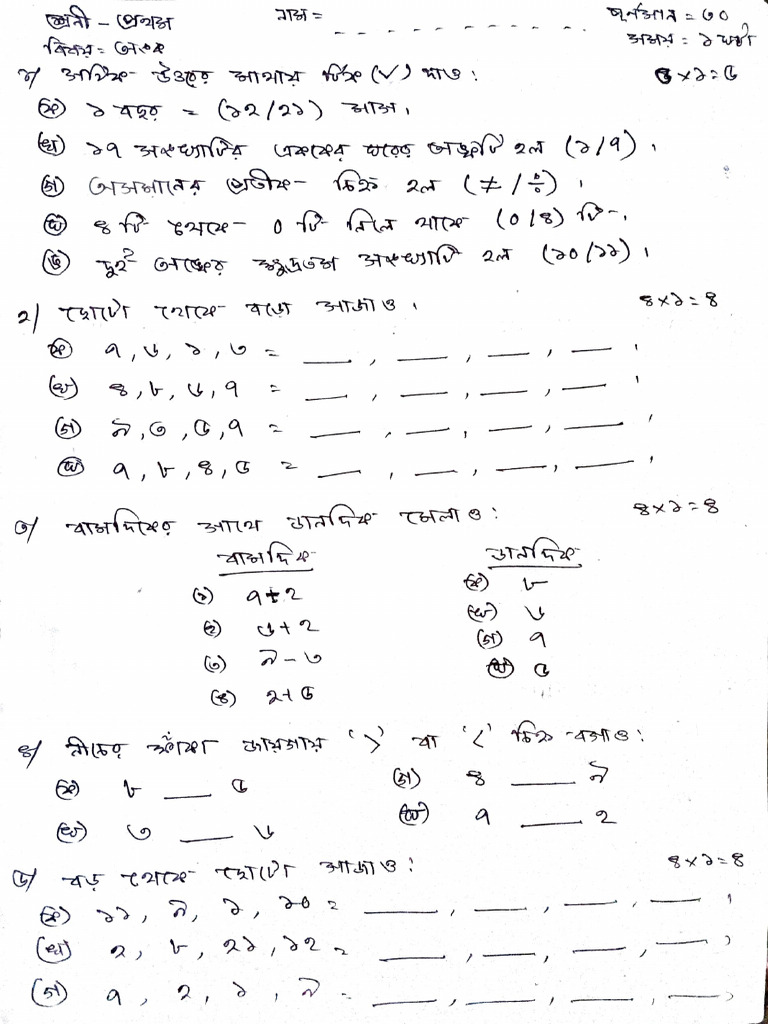 শ্রেনী - প্রথম নাম = _ _ _ _ _ _ _ _ _ _ _ পূর্নমান = ৩০
বিষয় = অংক সময় = ১ ঘন্টা
১/ সঠিক উত্তরের মাথায় টিক (√) দাও : ৫ x ১ = ৫
(ক) ১ বছর = (১২/২১) মাস।
(খ) ১৭ সংখ্যাটির এককের ঘরের অঙ্কটি হল (১/৭)।
(গ) অসমানের প্রতীক চিহ্ন হল (≠/÷)।
(ঘ) ৪ টি থেকে ০ টি নিলে থাকে (০/৪) টি।
(ঙ) দুই অঙ্কের ক্ষুদ্রতম সংখ্যাটি হল (১০/১১)।
২/ ছোটো থেকে বড়ো সাজাও। ৪ x ১ = ৪
(ক) ৭, ৬, ১, ৩ = __, __, __, __।
(খ) ৪, ৮, ৬, ৭ = __, __, __, __।
(গ) ৯, ৩, ৫, ৭ = __, __, __, __।
(ঘ) ৭, ৮, ৪, ৫ = __, __, __, __।
৩/ বামদিকের সাথে ডানদিক মেলাও : ৪ x ১ = ৪
বামদিক ডানদিক
(১) ৭+২ (ক) ৮
(২) ৬+২ (খ) ৬
(৩) ৯-৩ (গ) ৭
(৪) ২+৫ (ঘ) ৫
৪/ নীচের ফাঁকা জায়গায় '>' বা '<' চিহ্ন বসাও :
(ক) ৮ __ ৫ (গ) ৪ __ ৯
(খ) ৩ __ ৬ (ঘ) ৭ __ ২
৫/ বড় থেকে ছোটো সাজাও : ৪ x ১ = ৪
(ক) ১১, ৯, ১, ১০ = __, __, __, __।
(খ) ২, ৮, ২১, ১২ = __, __, __, __।
(গ) ৭, ২, ১, ৯ = __, __, __, __।